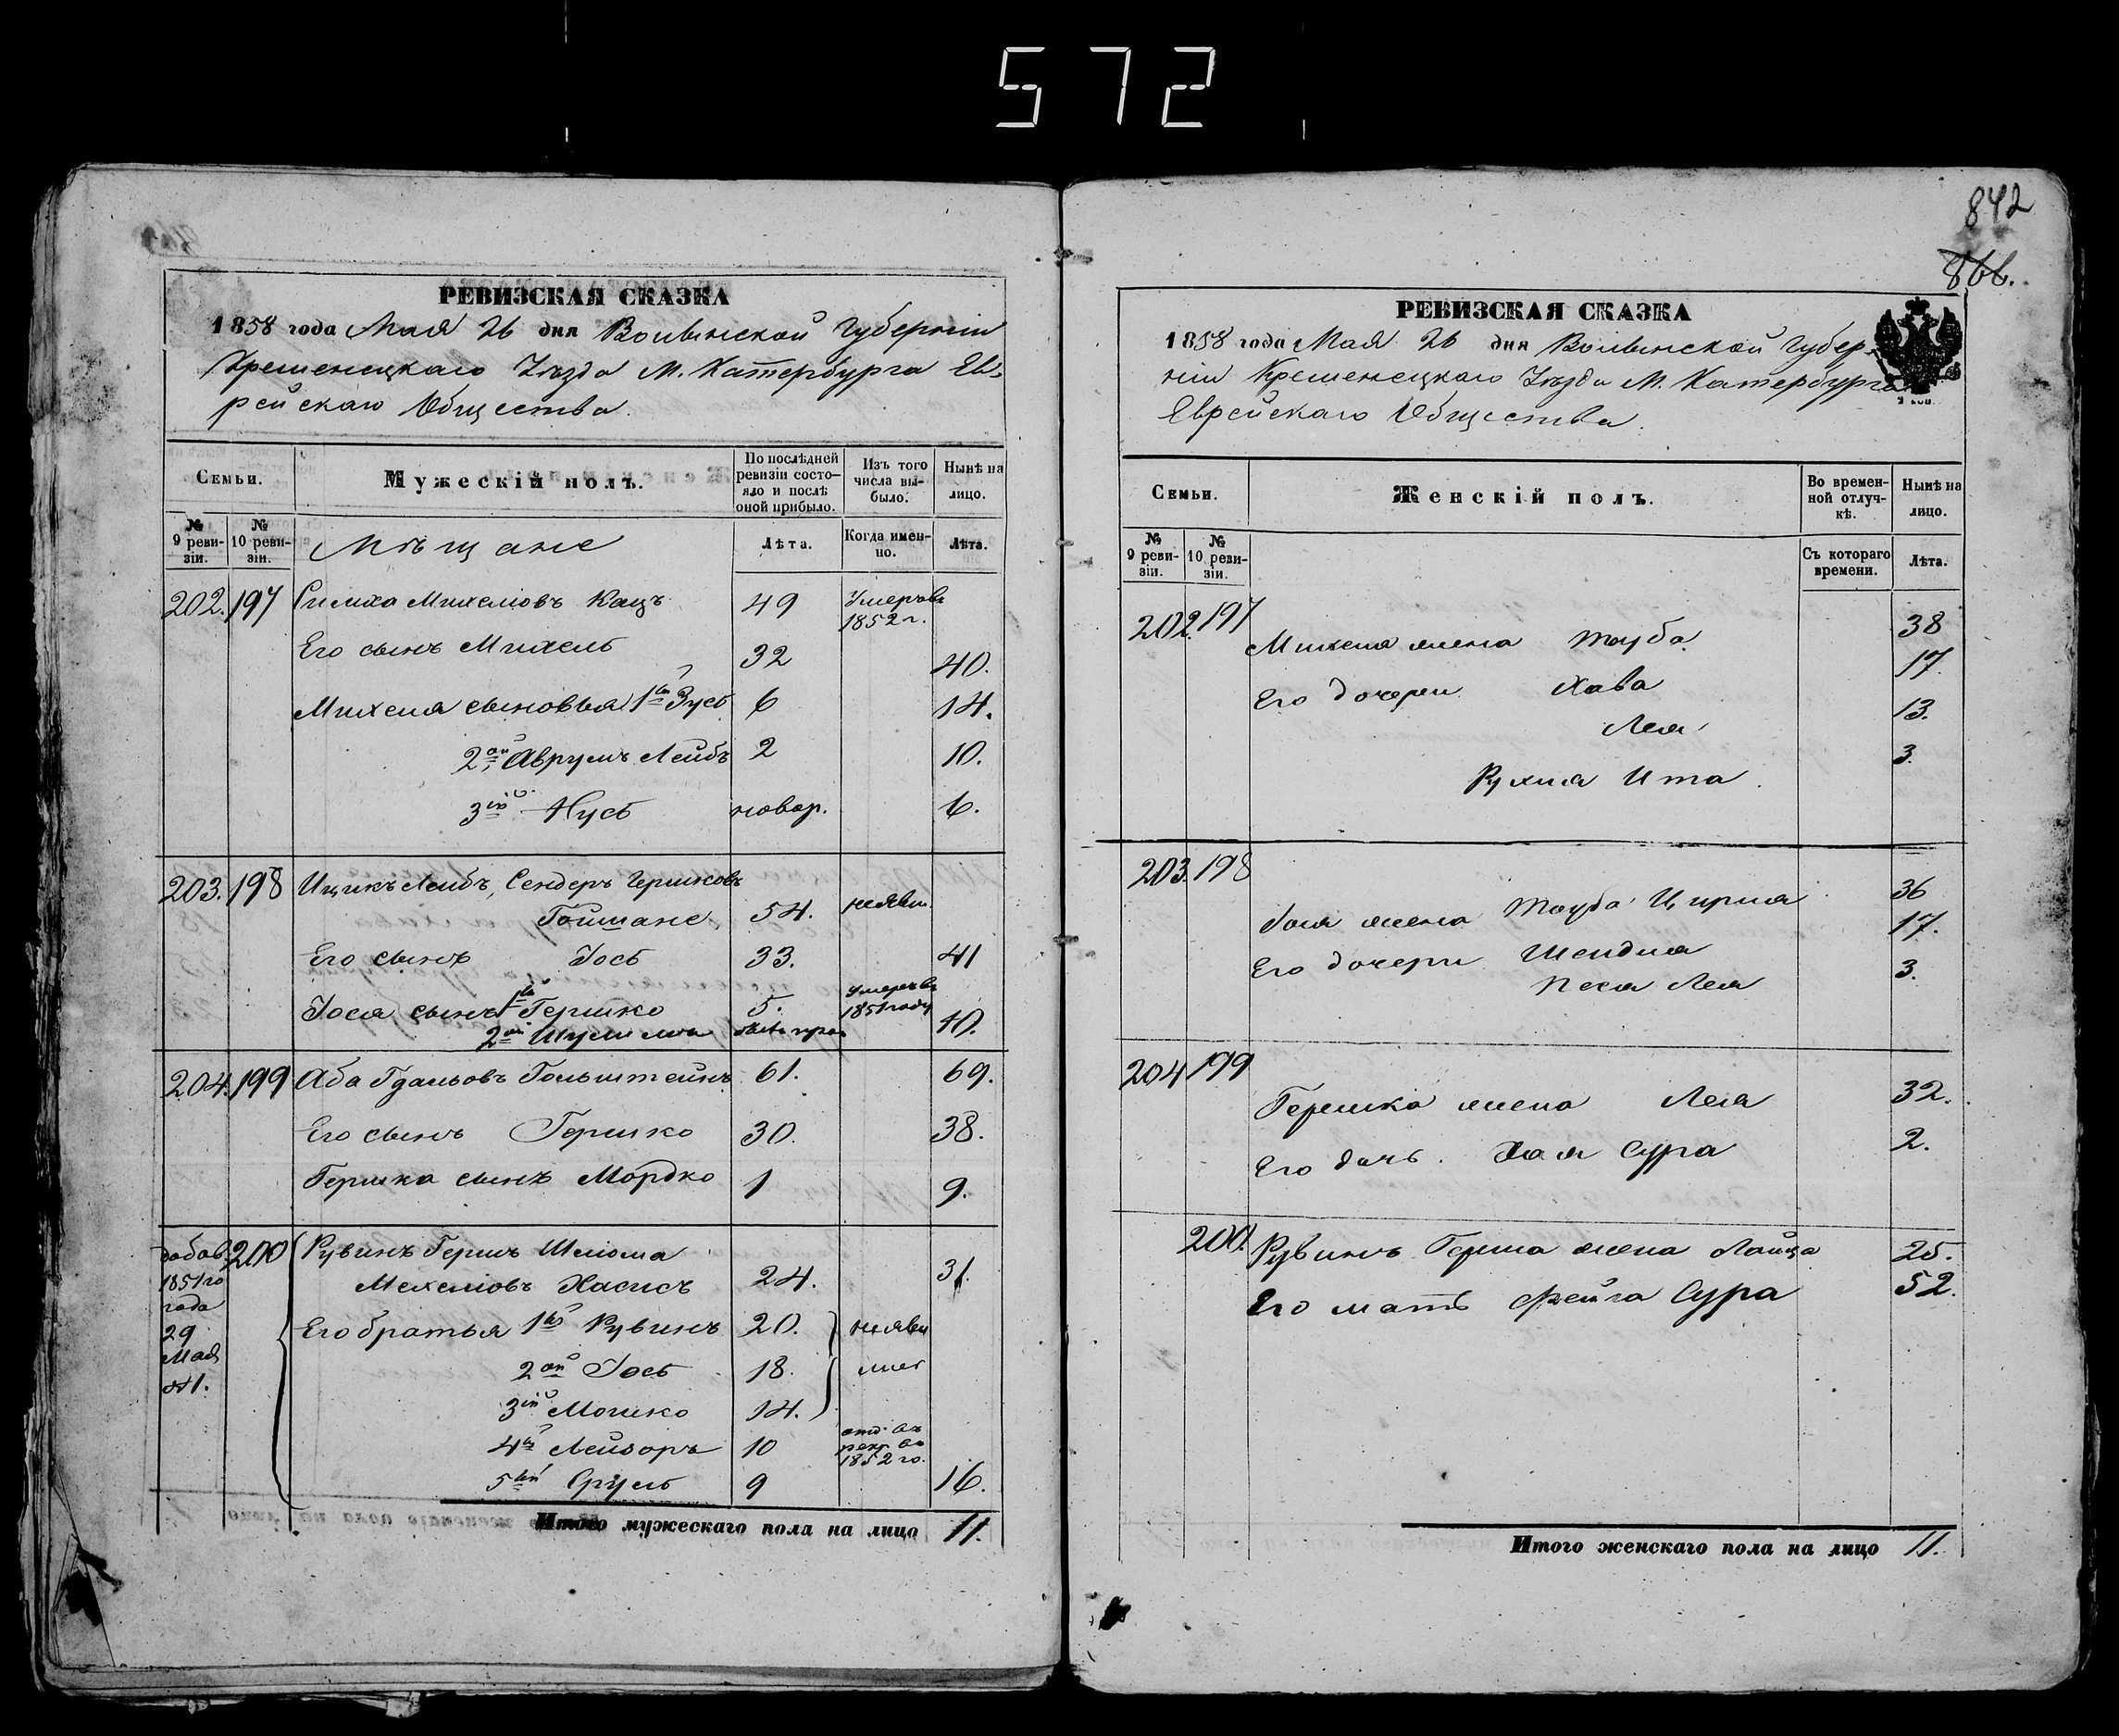 572
РЕВИЗСКАЯ СКАЗКА
1858 года Мая 26 дня Волынской Губерніи
Кременецкаго Уезда М. Катербурга Ев-
рейскаго Общества.
Семьи.
Мужескій полъ.
По послѣдней ревизіи состо-яло и послѣ оной прибыло.
Изъ того числа вы-было.
Нынѣ на лицо.
№ 9 реви-зіи.
№ 10 реви-зіи.
Мѣщане
Лѣта.
Когда имен-но.
Лѣта.
202. 197 Михеліовъ Кацъ 49 Умеръ въ 1852 г.
Его сынъ Михель 32 40.
Михеля сыновья 1й Зусь 6 14.
2ой Аврумъ Лейбъ 2 10.
3ій Нусь новор. 6.
203. 198 Ицикъ Лейбъ, Сендеръ Гершковъ
54. неяви.
Его сынъ Іось 33. 41
Іося сынъ 1й Гершко 5. Умеръ въ 1851 году
2ой 10.
204. 199 Аба Гдальовъ Гольштейнъ 61. 69.
Его сынъ Гершко 30. 38.
Гершка сынъ Мордко 1 9.
добав. 1851го года 29 Мая №1. 200 Рувинъ Гершъ Шліома
Мехеліовъ Хасисъ 24. 31.
Его братья 1й Рувинъ 20. неяви
2ой Іось 18. лись
3ій Мошко 14.
4й Лейзоръ 10 отд. въ рекр. въ 1852 го.
5тый Сруль 9 16.
Итого мужескаго пола на лицо 11.
842
866.
РЕВИЗСКАЯ СКАЗКА
1858 года Мая 26 дня Волынской Губер-
ніи Кременецкаго Уезда М. Катербурга
Еврейскаго Общества.
Семьи.
Женскій полъ.
Во времен-ной отлуч-кѣ.
Нынѣ на лицо.
№ 9 реви-зіи.
№ 10 реви-зіи.
Съ котораго времени.
Лѣта.
202. 197
Михеля жена Тауба 38
Его дочери Хава 17.
Лея 13.
Рухля Ита 3.
203. 198
Іося жена Тауба Цирля 36
Его дочери Шейдля 17.
Песя Лея 3.
204 199
Гершка жена Лея 32.
Его дочь. Хая Сура 2.
200. Рувинъ Герша жена 25.
Его мать Фейга Сура 52.
Итого женскаго пола на лицо 11.